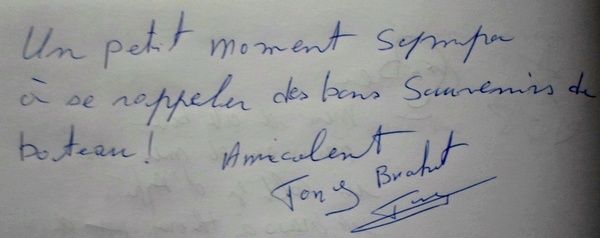 Un petit moment sympa
à se rappeler des bons souvenirs de
bateau! Amicalent
Tony